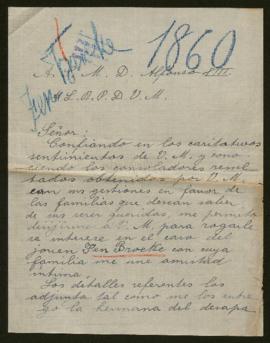 1860
A. S. M. D. Alfonso XIII
A L. R. P. D V. M.
Señor:
Confiando en los caritativos
sentimientos de V. M. y cono-
ciendo los consoladores resul-
tados obtenidos por V. M.
con sus gestiones en favor de
las familias que desean saber
de sus seres queridos, me permito
dirigirme á V. M. para rogarle
se interese en el caso del
joven Van Broethe con cuya
familia me une amistad
intima.
Los detalles referentes los
adjunto tal como me los entre-
go la hermana del desapa